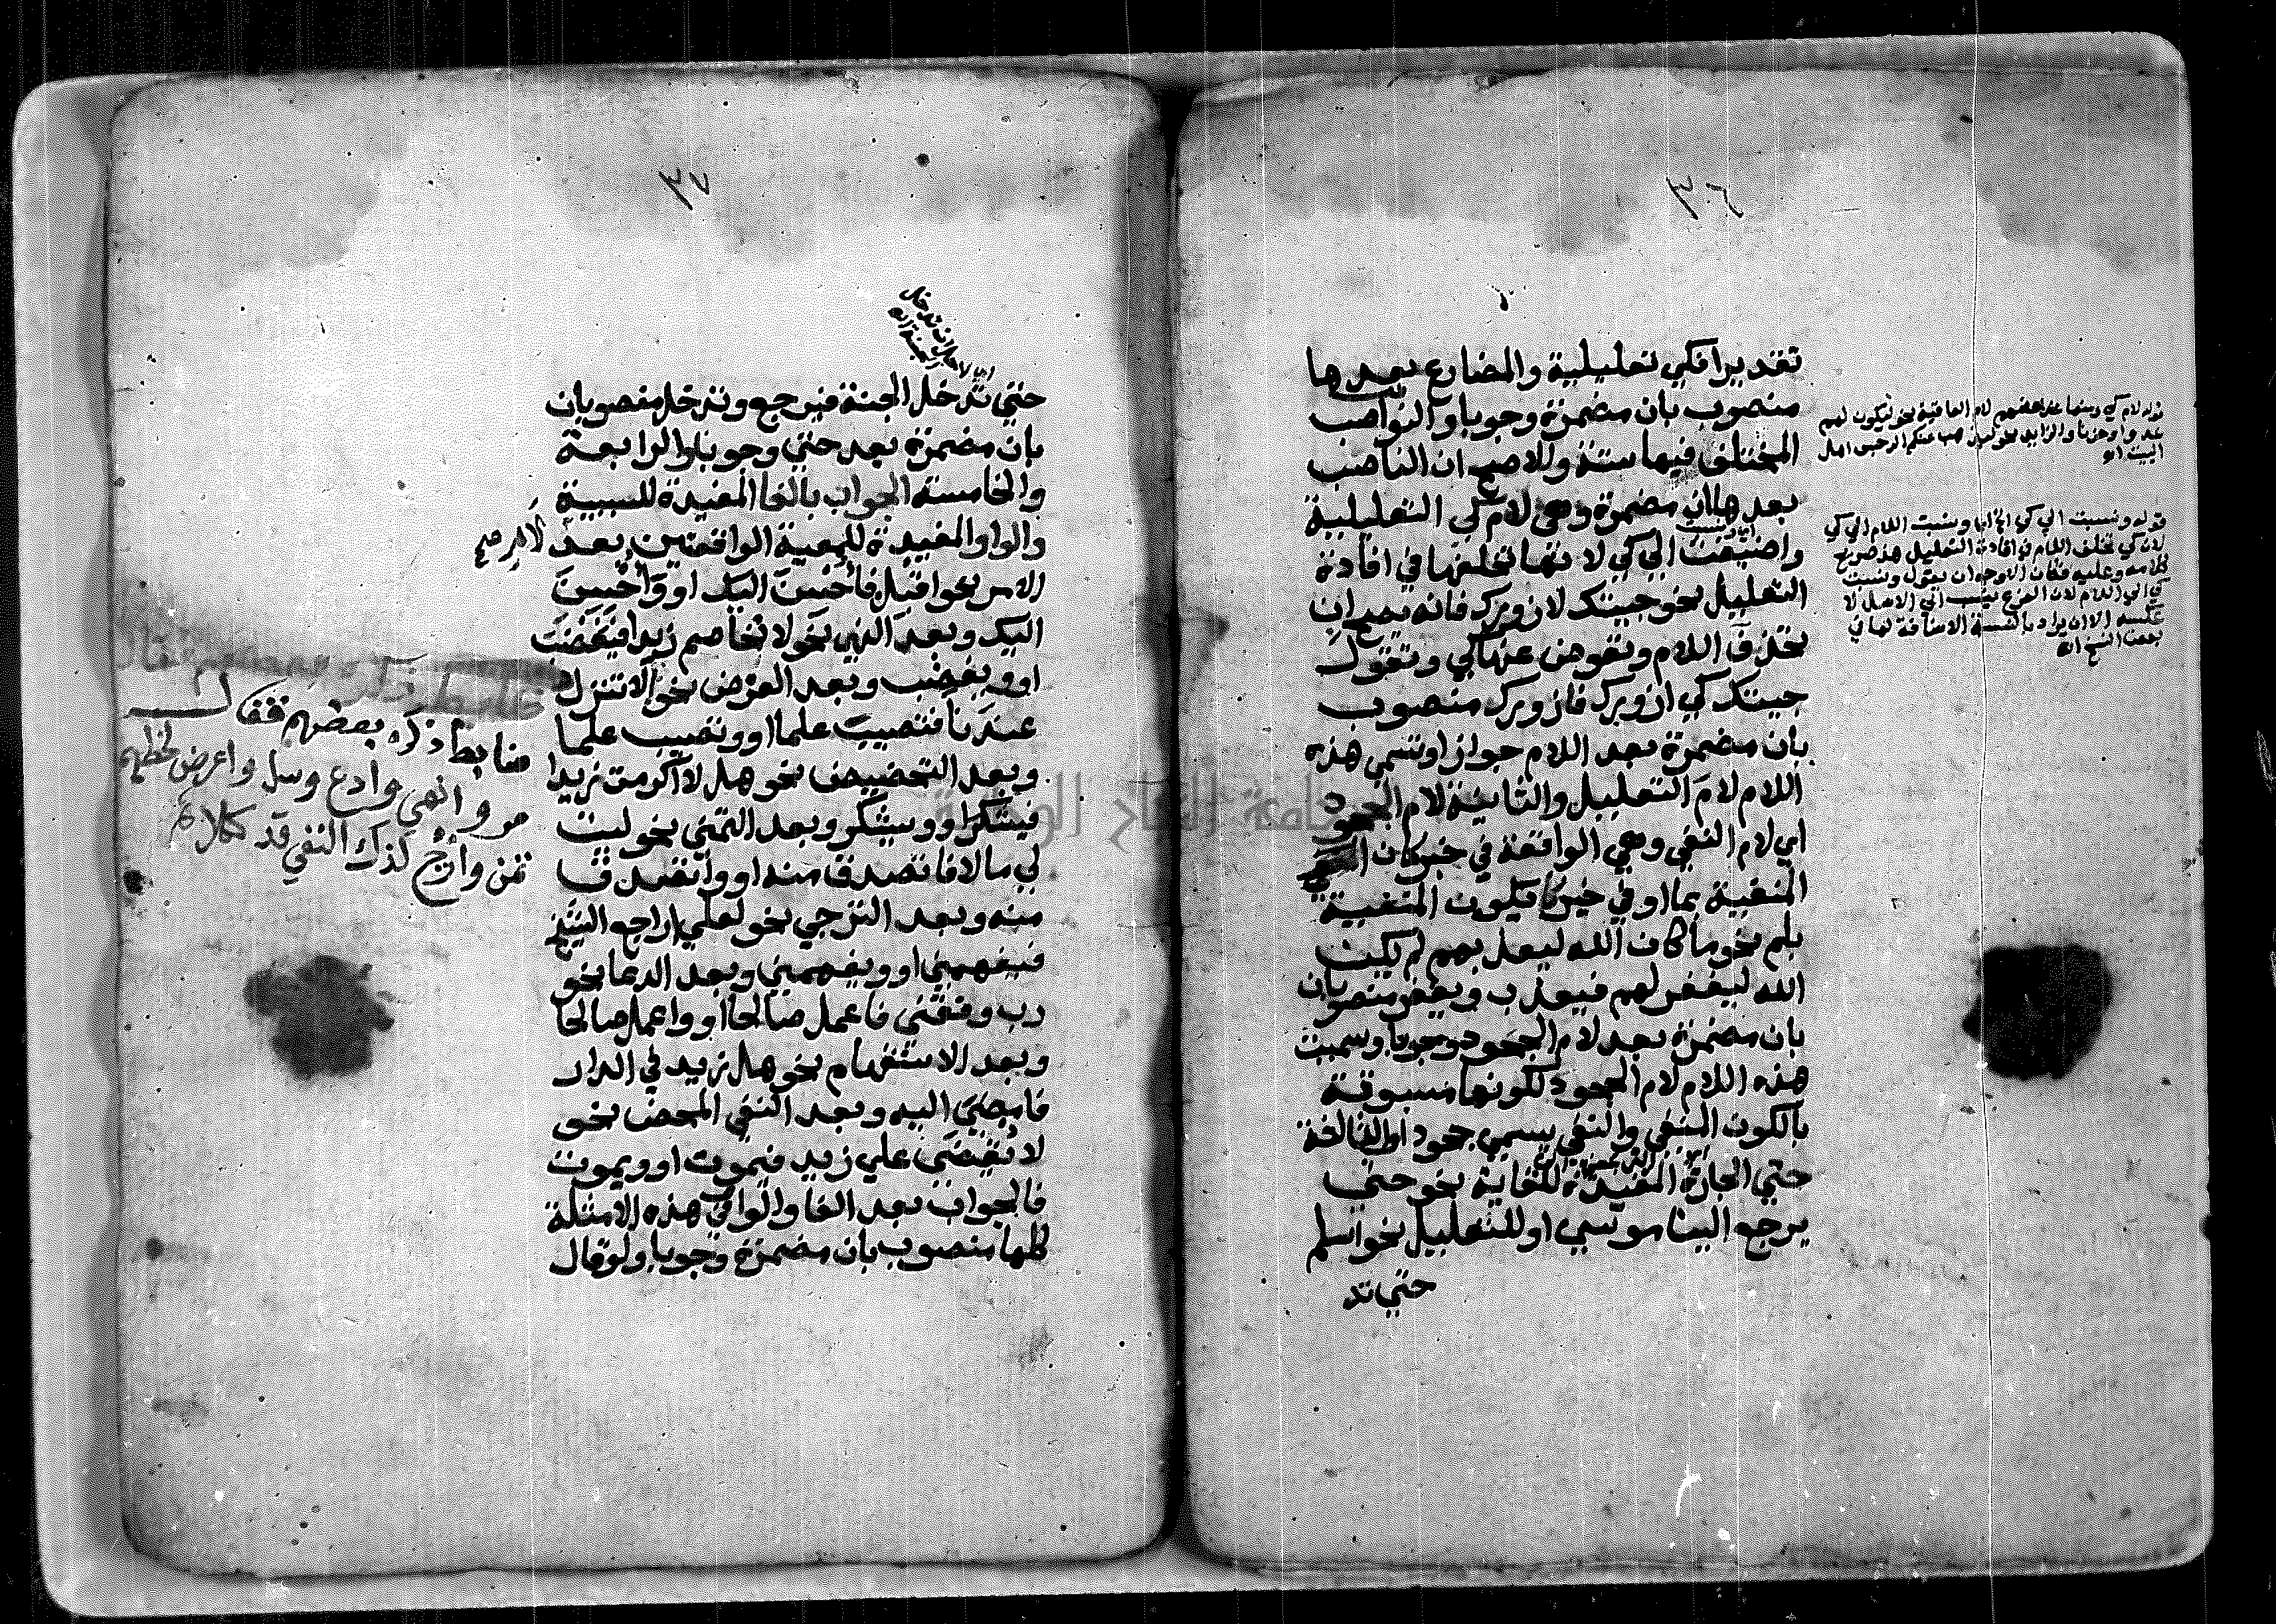 ٣٦
تقديرا فكي تعليلية والمضارع بعدها
منصوب بان مضمرة وجوبا والنواصب
المختلف فيها ستة والاصح ان الناصب
بعدها ان مضمرة وهي لام كي التعليلية
واضيفت الي كي لانها تخلفها في افادة
التعليل نحو جيتك لازورك فانه يصح ان
تحذف اللام وتعوض عنها كي وتقول
جيتك كي ازورك فازورك منصوب
بان مضمرة بعد اللام جوازا وتسمي هذه
اللام لام التعليل والثانية لام الجحود
اي لام النفي وهي الواقعة في خبر كان
المنفية بما او في خبر يكون المنفية
بلم نحو ما كان الله ليعذبهم لم يكن
الله ليغفر لهم فيعذب ويغفر منصوبان
بان مضمرة بعد لام الجحود وجوبا وسميت
هذه اللام لام الجحود لكونها مسبوقة
بالكون المنفي والنفي يسمي جحودا والثالثة
حتي الجارة المفيدة للغاية نحو حتي
يرجع الينا موسي او للتعليل نحو اسلم
حتي تد
قوله لام كي ومنها عند بعضهم لام العاقبة نحو ليكون لهم
عدوا وحزنا والزايدة نحو ليذهب عنكم الرجس اهل
البيت اه
قوله ونسبت الي كي اي وسبت اللام الي كي
لان كي تخلف اللام في افادة التعليل هذا صريح
كلامه وعليه فكان الاوجه ان يقول ونسبت
كي الي اللام لان الفرع ينسب الي الاصل لا
عكسه الا ان يراد بالنسبة الاضافة لما في
بعض النسخ اه
٣٧
حتي تدخل الجنة فيرجع وتدخل منصوبان
بان مضمرة بعد حتي وجوبا والرابعة
والخامسة الجواب بالفا المفيدة للسببية
والواو المفيدة للمعية الواقعتين بعد
الامر نحو اقبل فاحسن اليك او واحسن
اليك وبعد النهي نحو لا تخاصم زيدا فيغضب
او ويغضب وبعد العرض نحو الا تنزل
عندنا فتصيب علما او وتصيب علما
وبعد التحضيض نحو هلا اكرمت زيدا
فيشكر او ويشكر وبعد التمني نحو ليت
لي مالا فاتصدق منه او واتصدق
منه وبعد الترجي نحو لعلي اراجع الشيخ
فيفهمني او ويفهمني وبعد الدعا نحو
رب وفقني فاعمل صالحا او واعمل صالحا
وبعد الاستفهام نحو هل زيد في الدار
فامضي اليه وبعد النفي المحض نحو
لا يقضي علي زيد فيموت او ويموت
فالجواب بعد الفا والواو في هذه الامثلة
كلها منصوب بان مضمرة وجوبا ولو قال
ضابط ذكره بعضهم فقال
مر وانهي وادع وسل واعرض لحظهم
تمن وارج كذاك النفي قد كملا